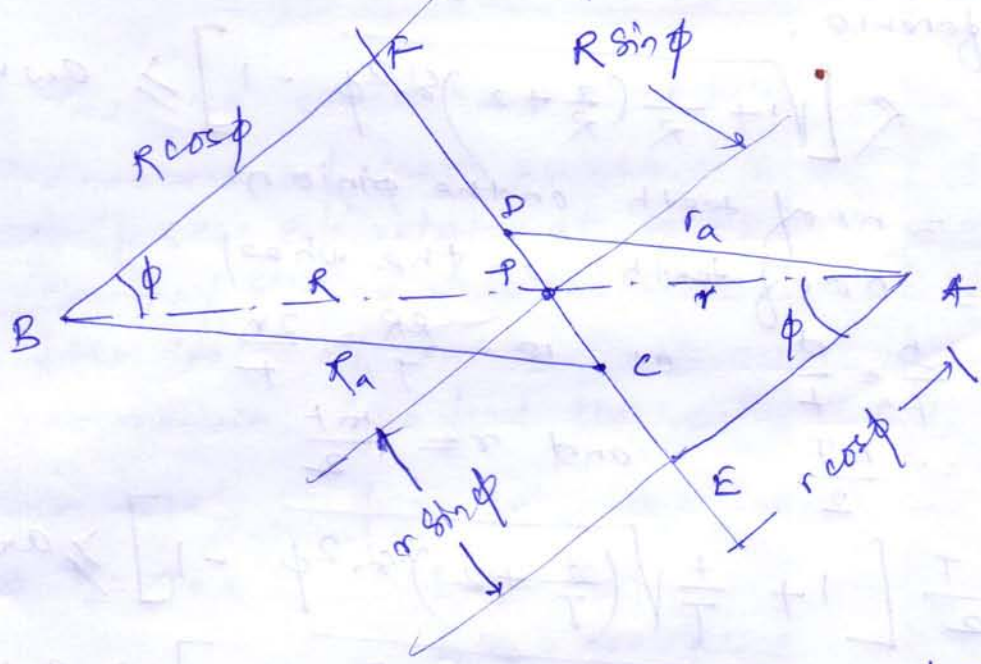 F
R sinφ
R cosφ
D
r_a
φ
R
P
r
A
B
φ
R_a
C
r cosφ
E
r sinφ